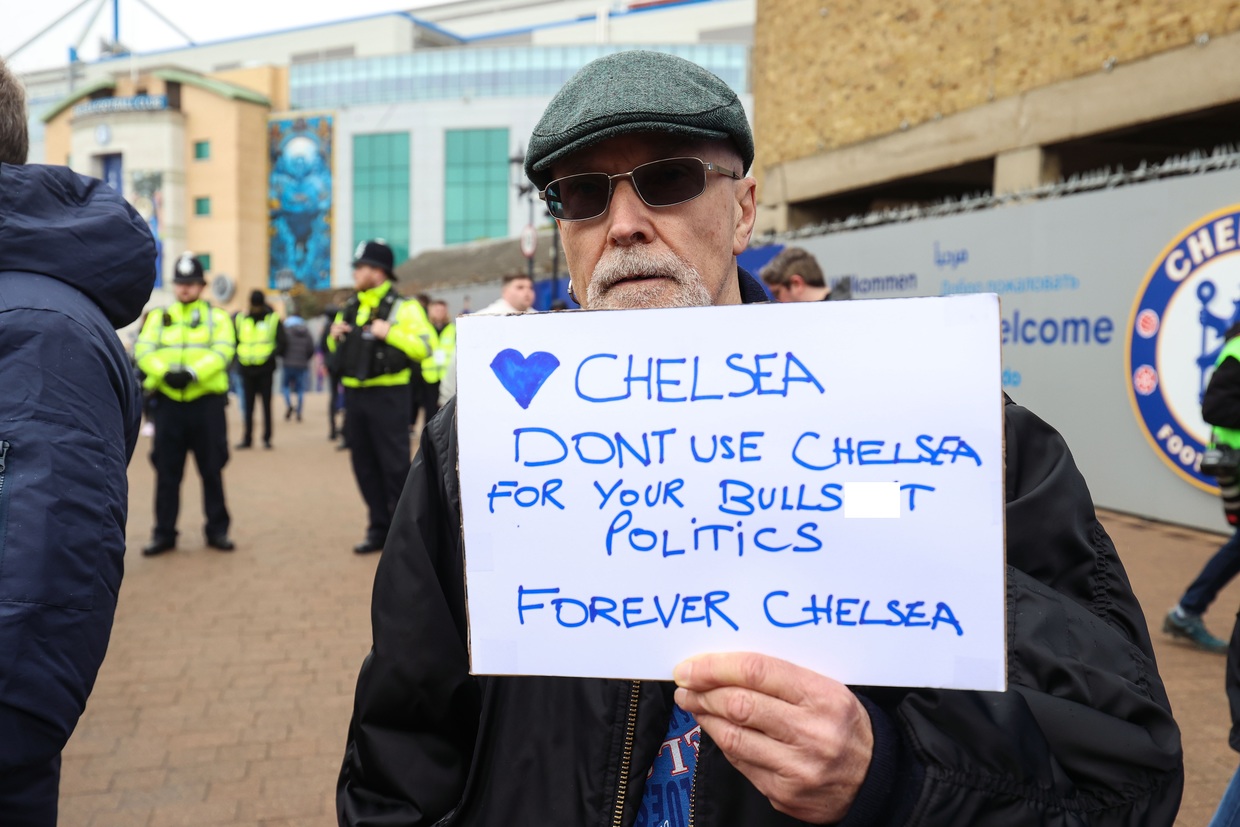 CHELSEA
DONT USE CHELSEA
FOR YOUR BULLS T
POLITICS
FOREVER CHELSEA
Добро пожаловать
elcome
CHEL
FOO